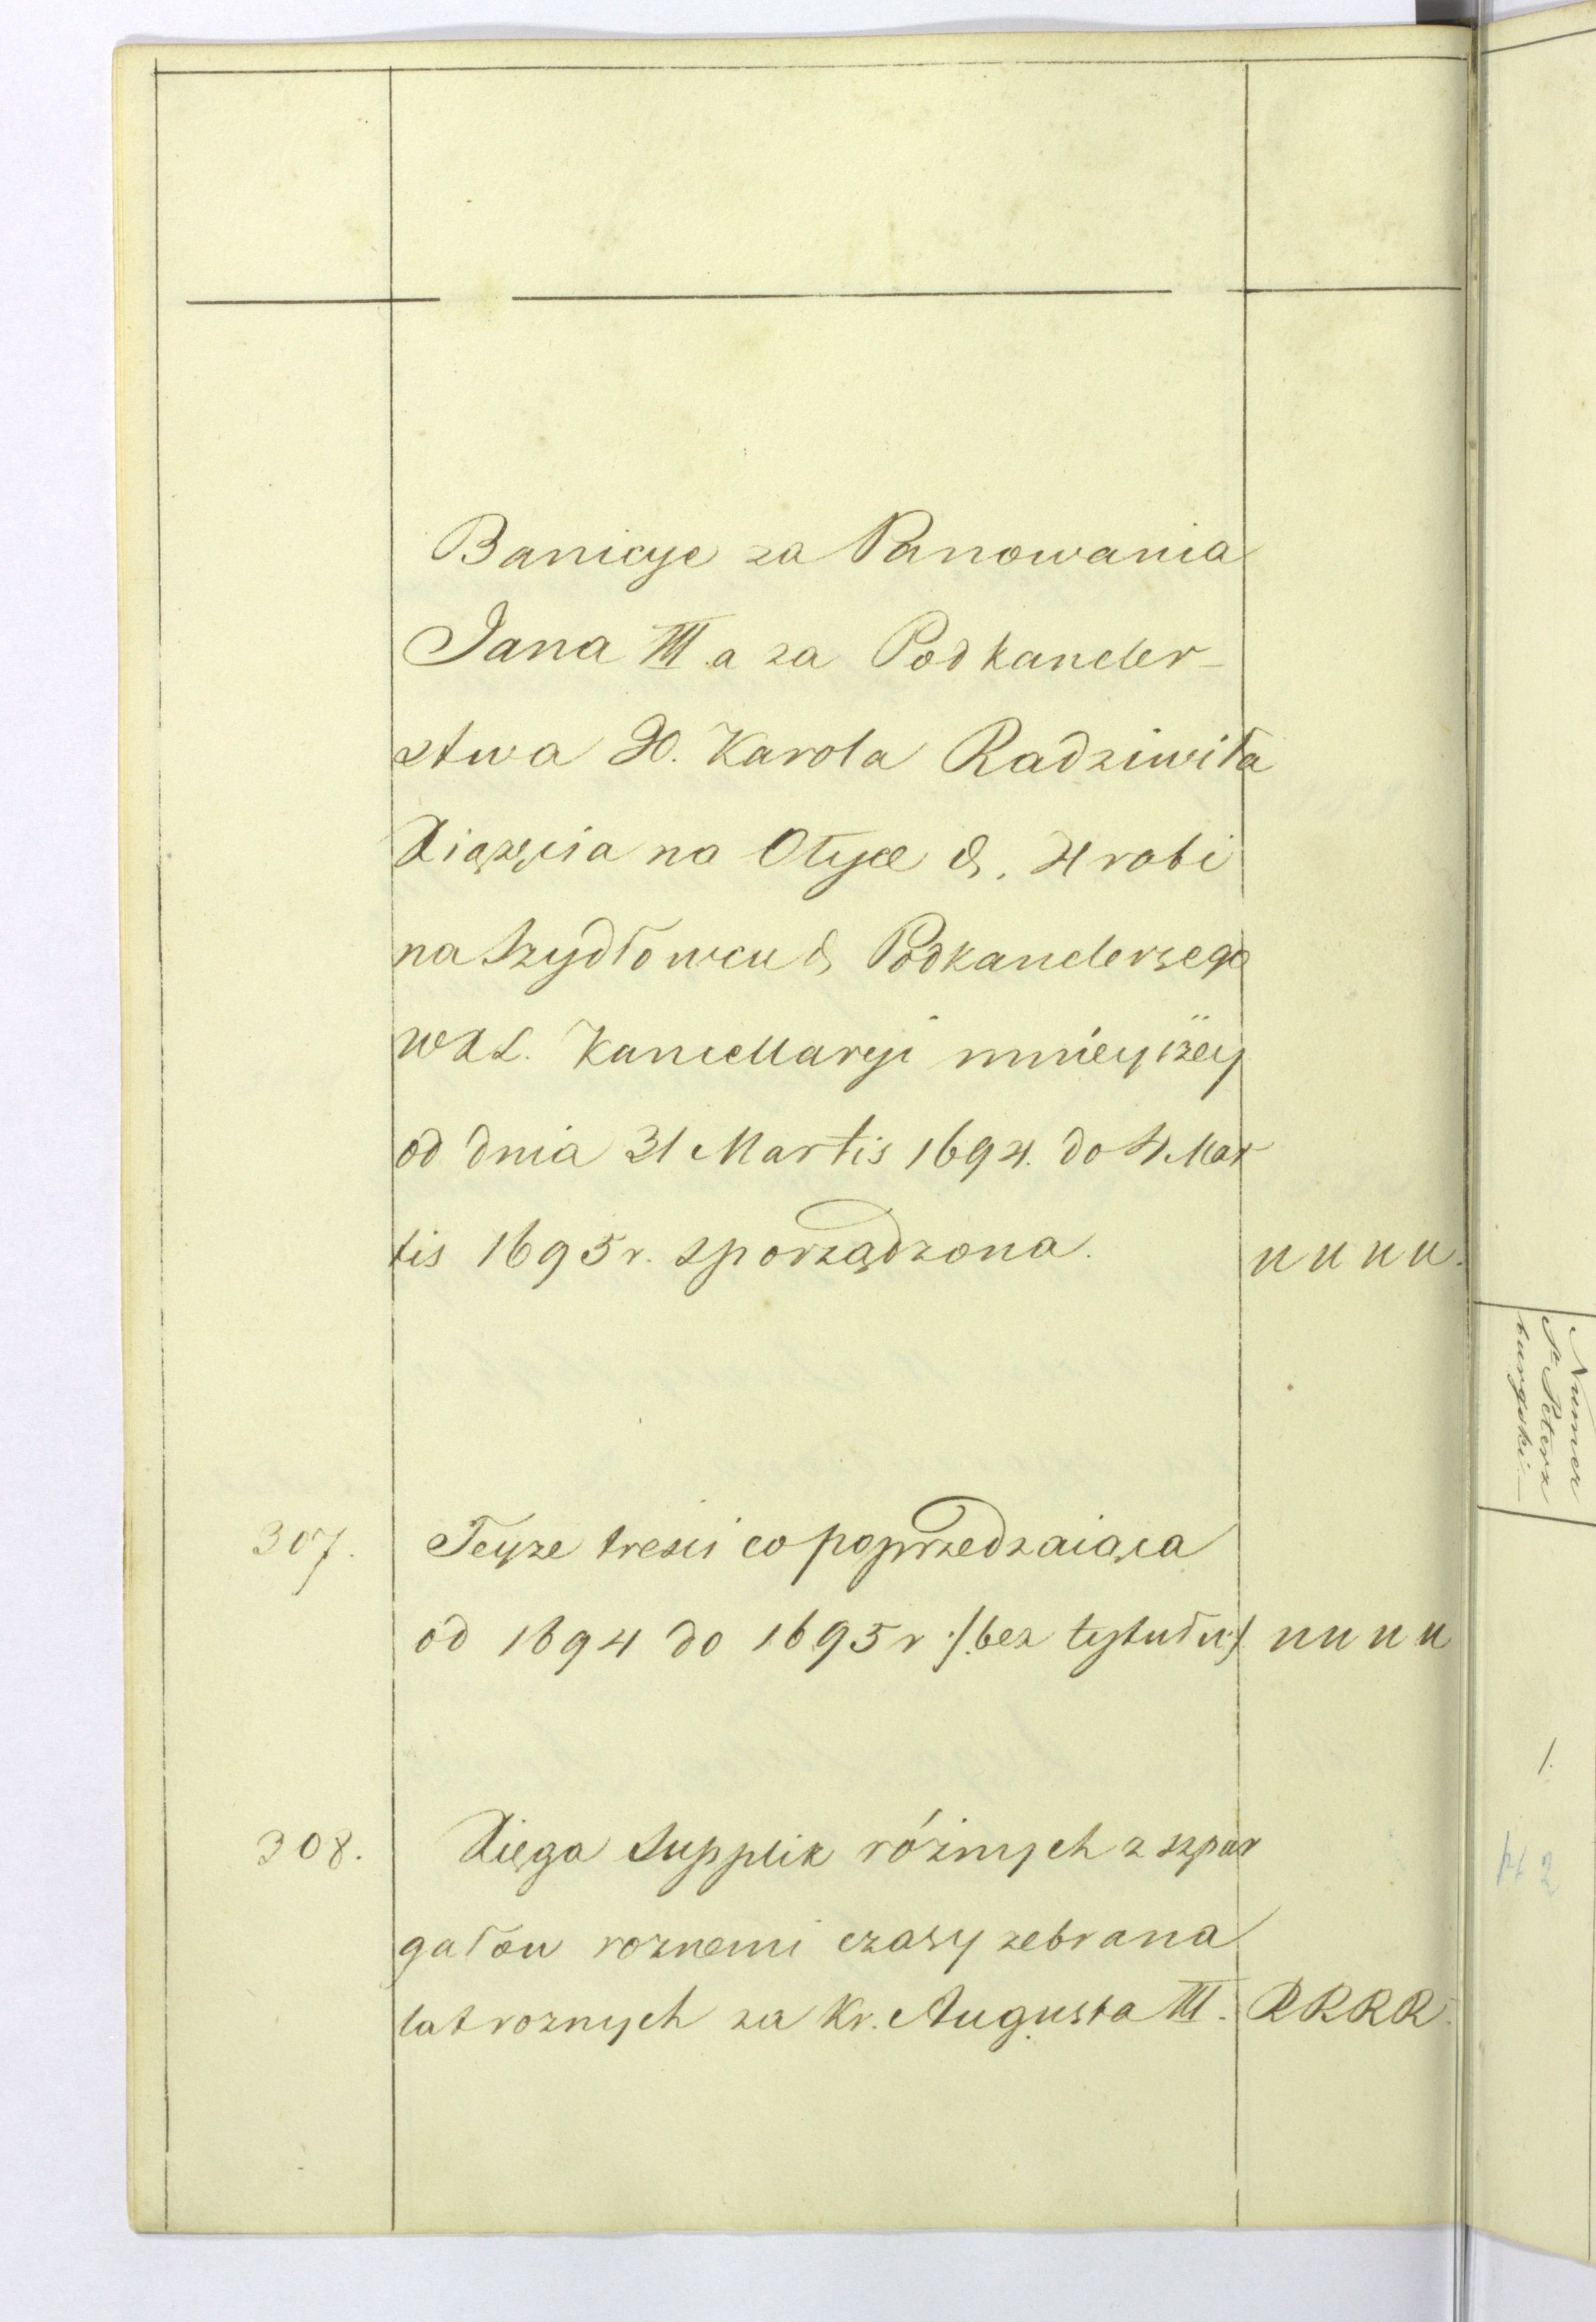 Banicye za Panowania
Jana III a za Podkancler-
ztwa X. Karola Radziwiła
Xiązęcia na Ołyce &. Hrabi
na Szydłowcu & Podkanclerzego
WXL. Kancellaryi mnieyszey
od dnia 31 Martis 1694. do 4 Mar
tis 1695 r. sporządzona. uuuu.
307. Teyze tresci co poprzedzaiąca
od 1694 do 1695 r /:bez tytułu:/ uuuu
308. Xięga Supplik róźnych z szpar
gałow roznemi czasy zebrana
lat roznych za Kr. Augusta III. RRRR.
Numer
St Petersz
burgski —
1.
pt 2